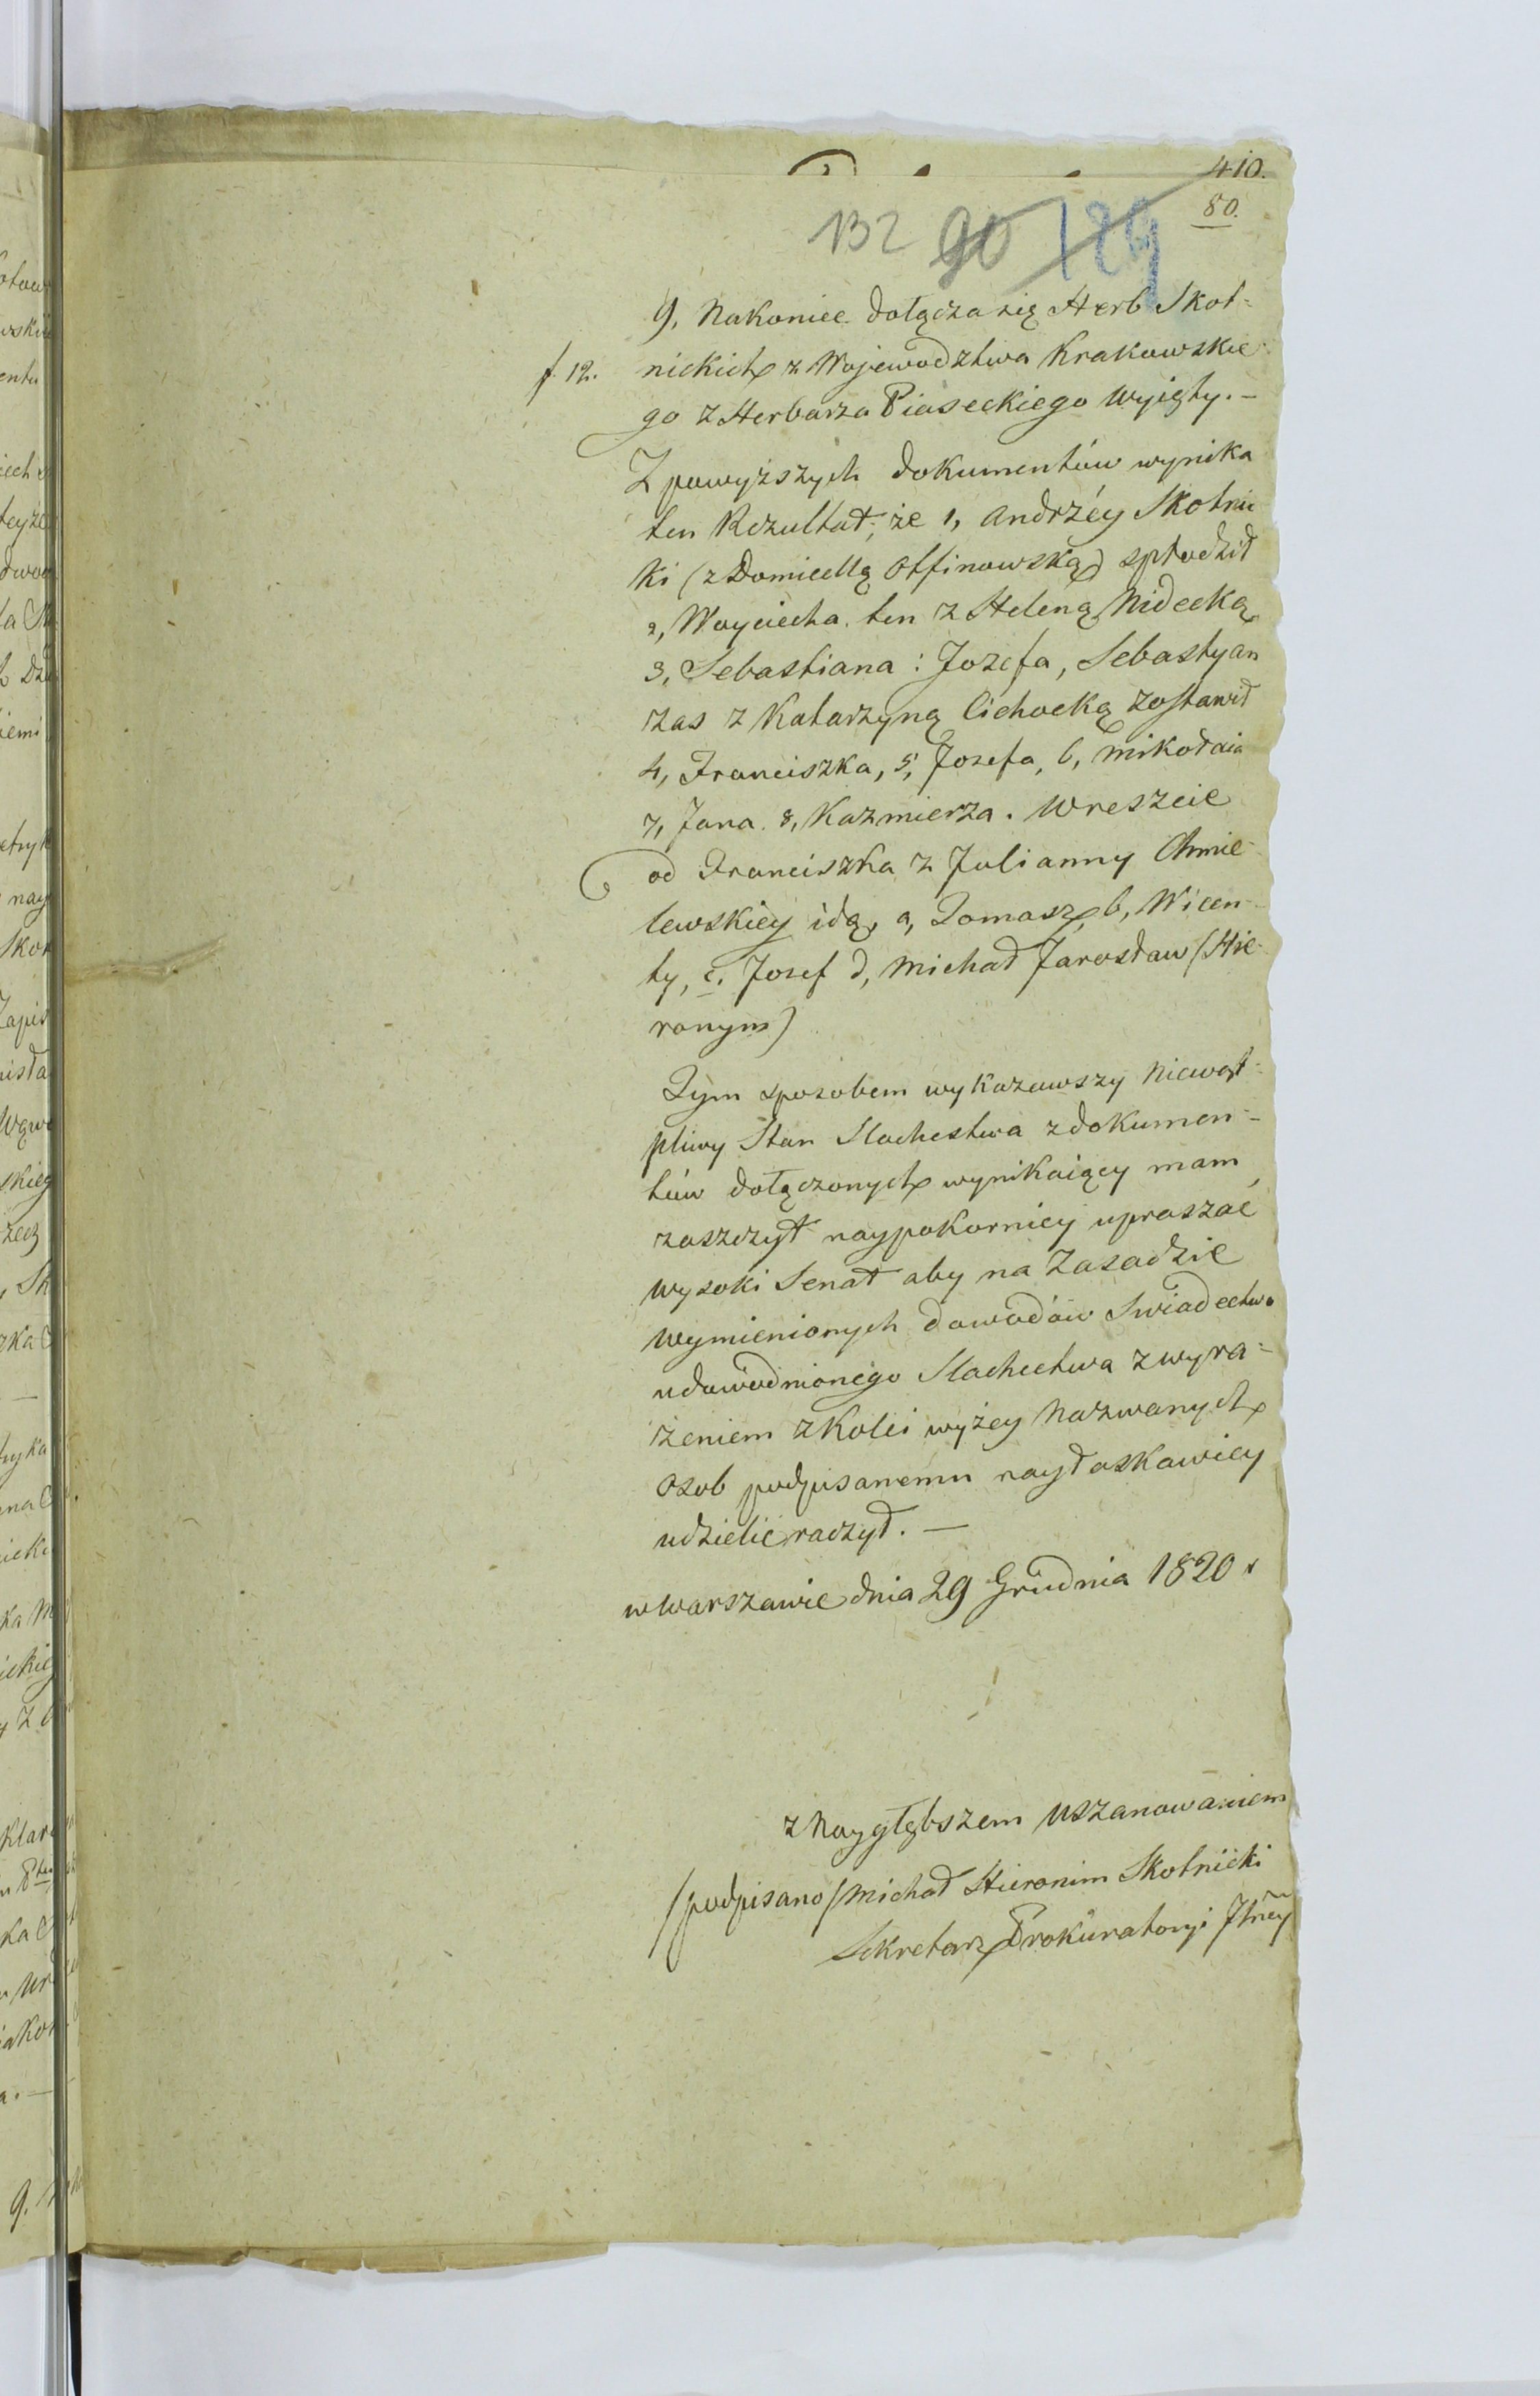 410.
80.
132 90 129
9, Nakoniec dołącza się Herb Skot-
f. 12. nickich z Województwa Krakowskie-
go z Herbarza Piaseckiego wyięty. —
Z powyższych dokumentów wynika
ten Rezultat; że 1, Andrzéy Skotnic-
ki (z Domicellą Otfinowską) spłodził
2, Woyciecha. ten z Heleną Nidecką
3, Sebastiana : Jozefa, Sebastyan
zas z Katarzyną Cichocką zostawił
4, Franciszka, 5, Jozefa, 6, Mikołaia
7, Jana. 8, Kazmierza. Wreszcie
od Franciszka z Julianny Chmie-
lewskiey idą, a, Tomasz, b, Wicen-
ty, c. Josef d, Michał Jarosław (Hie-
ronym)
Tym sposobem wykazawszy niewąt-
pliwy Stan Slachestwa z dokumen-
tów dołączonych wynikaiący mam
zaszczyt naypokorniey upraszać
wysoki Senat aby na Zasadzie
wymienionych dowodów Swiadectwo
udowodnionego Slachectwa z wyra-
żeniem z Kolei wyżey nazwanych
osob podpisanemu nayłaskawiey
udzielić raczył. —
w Warszawie dnia 29 Grudnia 1820 r
z naygłębszem uszanowaniem
/podpisano/ Michał Hieronim Skotnicki
Sekretarz Prokuratoryi